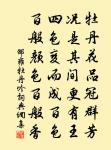 牡丹花品冠群芳
況是其間更有王
四色變而成百色
百般顏色百般香
邵雍牡丹吟詞典網集